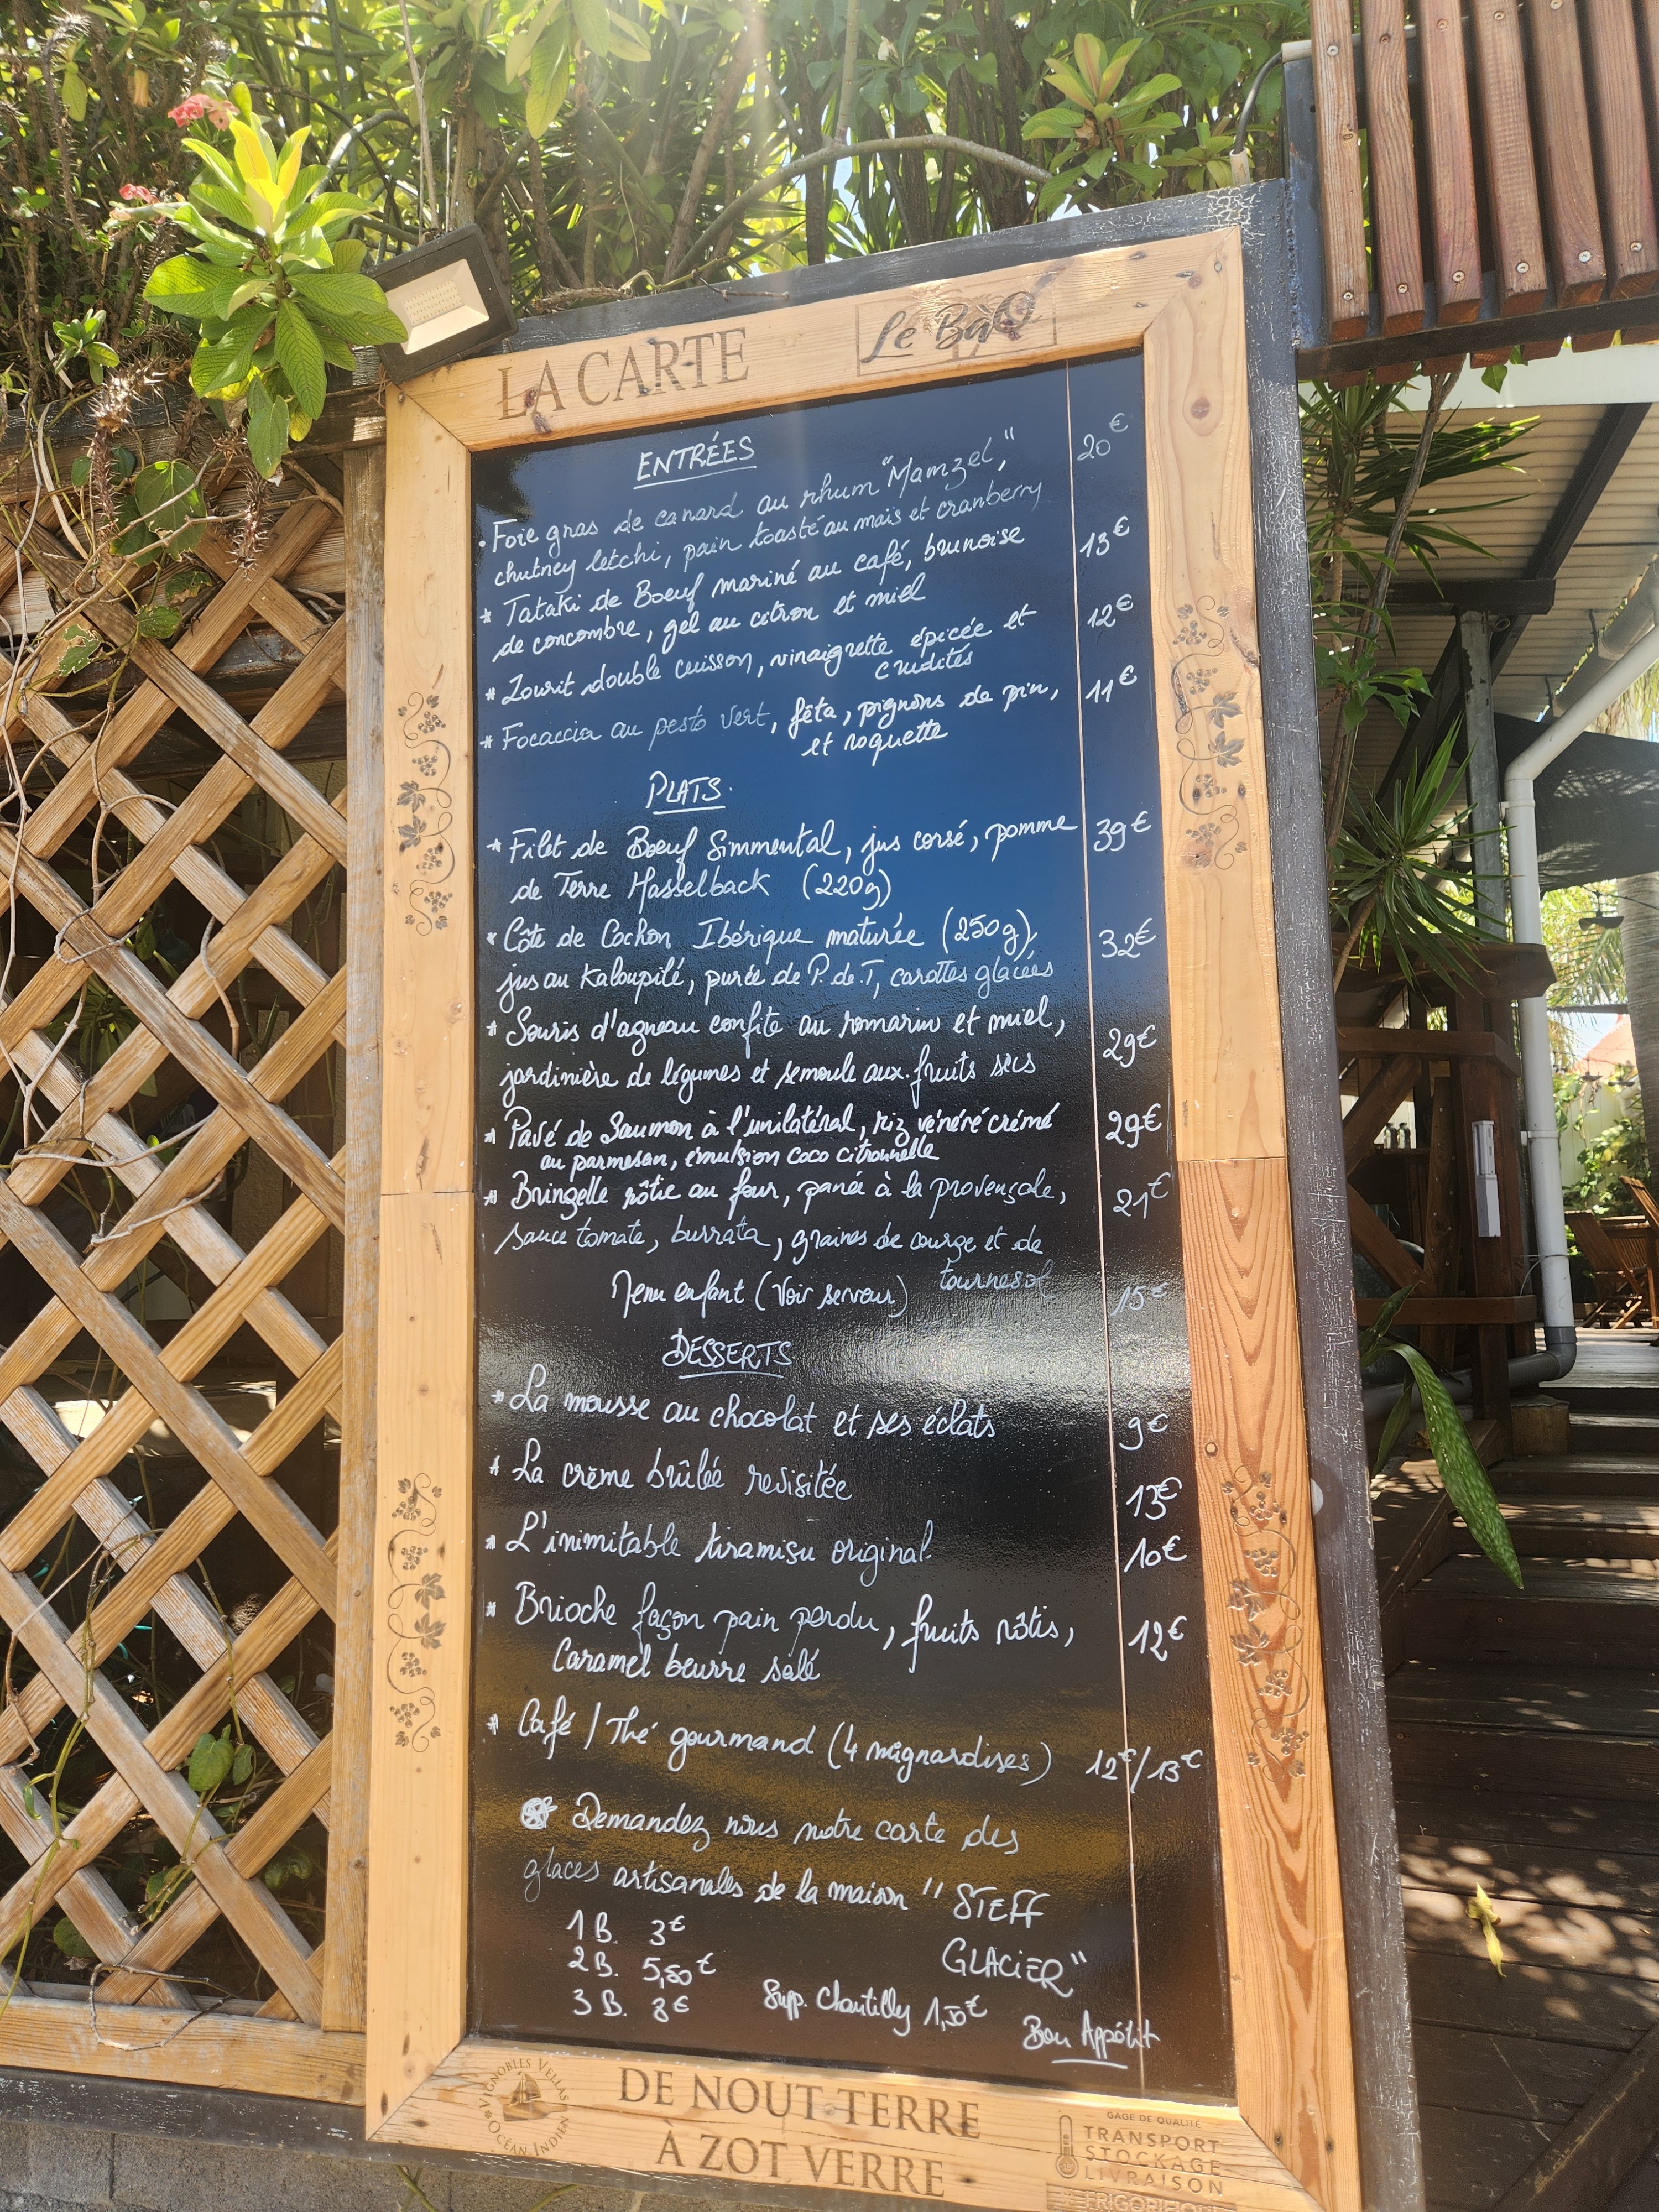 LA CARTE
Le BaQ
ENTRÉES
• Foie gras de canard au rhum "Mamzel", 20€
chutney letchi, pain toasté au maïs et cranberry
* Tataki de Boeuf mariné au café, brunoise 13€
de concombre, gel au citron et miel
* Zourit double cuisson, vinaigrette épicée et 12€
crudités
* Focaccia au pesto vert, fêta, pignons de pin, 11€
et roquette
PLATS.
* Filet de Boeuf Simmental, jus corsé, pomme 39€
de Terre Hasselback (220g)
* Côte de Cochon Ibérique maturée (250g), 32€
jus au Kaloupilé, purée de P. de T, carottes glacées
* Souris d'agneau confite au romarin et miel, 29€
jardinière de légumes et semoule aux fruits secs
* Pavé de Saumon à l'unilatéral, riz vénéré crémé 29€
au parmesan, émulsion coco citronnelle
* Bringelle rôtie au four, panée à la provençale, 21€
sauce tomate, burrata, graines de courge et de
tournesol
Menu enfant (Voir serveur) 15€
DESSERTS
* La mousse au chocolat et ses éclats 9€
* La crème brûlée revisitée 13€
* L'inimitable tiramisu original. 10€
* Brioche façon pain perdu, fruits rôtis, 12€
Caramel beurre salé
* Café / Thé gourmand (4 mignardises) 12€/13€
Demandez nous notre carte des
glaces artisanales de la maison "STEFF
GLACIER"
1 B. 3€
2 B. 5,50€
3 B. 8€
Supp. Chantilly 1,50€
Bon Appétit
VIGNOBLES VELLAS
OCÉAN INDIEN
DE NOUT TERRE
À ZOT VERRE
GAGE DE QUALITÉ
TRANSPORT
STOCKAGE
LIVRAISON